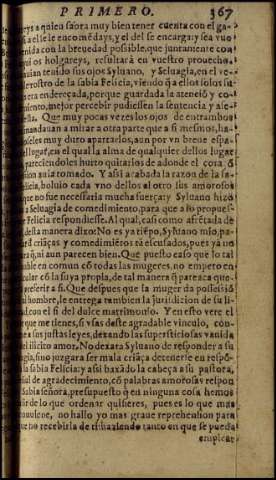 PRIMERO. 367
eys a quien sabra muy bien tener cuenta con el ga-
si a el se le encomẽdays, y el del se encargar; y sea vue
enida con la breuedad possible, que juntamente con
qui os holgareys, resultarà en vuestro prouecho
auian tenido sus ojos Syluano, y Seluagia, en el ve-
rostro de la sabia Felicia, viendo q̃ a ellos solos su
era endereçada, porque guardada la atenciõ y co-
miento, mejor percibir pudiessen la sentencia y
della. Que muy pocas vezes los ojos de entrambos
mandauan a mirar a otra parte que a si mesmos, ha-
oseles muy duro apartarlos, aun por vn breue espa-
l lugar, en el qual la alma de qualquier dellos lugar
pareciendoles hurto quitarlos de adonde el coraçõ
ion auia tomado. Y assi acabada la razon de la sa-
elicia, boluio cada vno dellos al otro sus amorosos
que no fue necessaria mucha fuerça; y Syluano hizo
a Seluagia de comedimiento, para que a lo propues-
Felicia respondiesse. Al qual, casi como afrẽtada de
desta manera dixo: No es ya tiẽpo, Syluano mio, pa-
rd criãças y comedimiẽtos tã escusados, pues ya no
arã, ni aun parecen bien. Que puesto caso que lo tal
able en comun cõ todas las mugeres, no empero en
cular cõ la suya propia, de tal manera q̃ parezca que-
preferir a si. Que despues que la muger da possessiõ
al hombre, le entrega tambien la juridizion de su li-
d, con el si del dulce matrimonio. Y en esto vere el
que me tienes, si vsas deste agradable vinculo, con-
a sus justas leyes, dexando las supersticiosas vanida
el ilicito amor. No dexara Syluano de responder a su
gia, sino juzgara ser mala criãça detenerse en respõ-
la sabia Felicia: y assi baxado la cabeça a su pastora,
al de agradecimiento, cõ palabras amorosas respon
Sabia señora, presupuesto q̃ en ninguna cosa hemos
ir de lo que ordenar quisieres, pues es lo que mas
conuiene, no hallo yo mas graue reprehension para
que no recebirla de ti: haziendo tanto en que se pueda
emplear